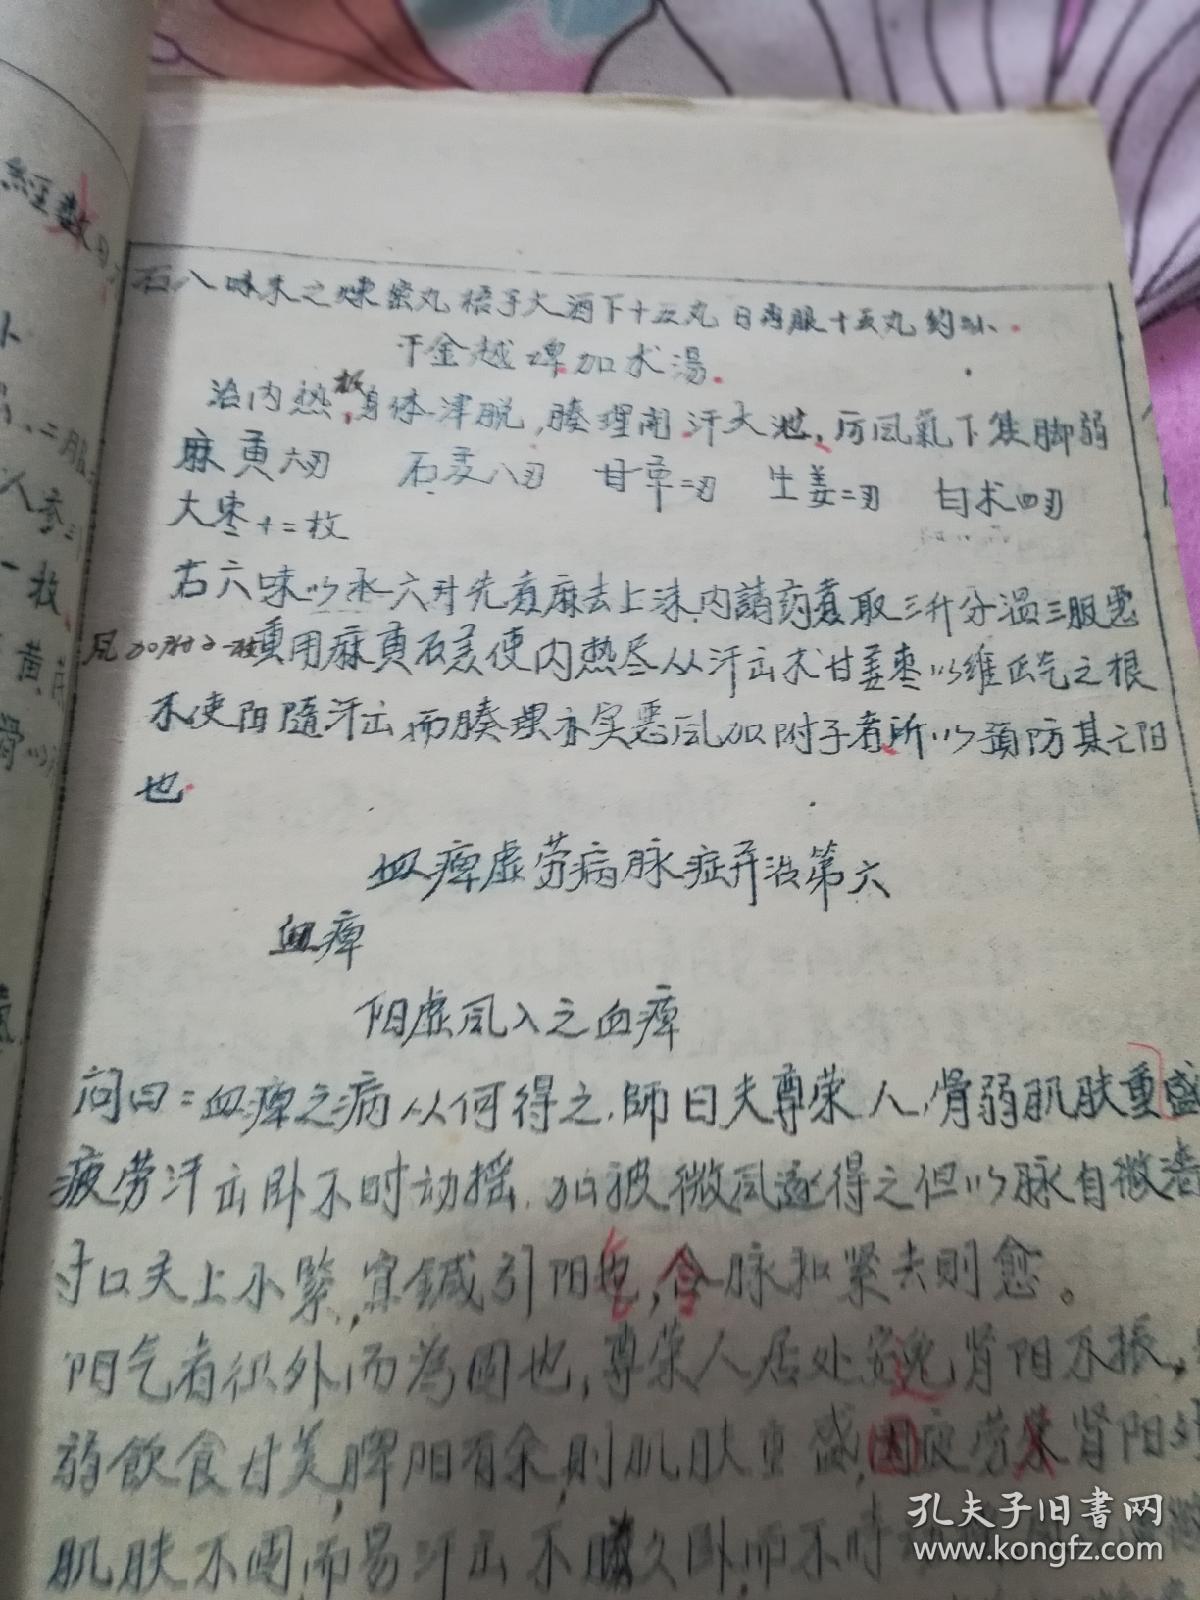 右八味末之炼蜜丸梧子大酒下十五丸日再服十五丸约
千金越婢加术湯.
治内热极,身体津脱,腠理開.汗大泄,厉风氣下焦脚弱
麻黄六刃 石羔八刃 甘草二刃 生姜二刃 白术四刃
大枣十二枚
右六味以水六升先煮麻去上沫.内諸药煮取三升分温三服恶
风加附子一枚重用麻黄石羔使内熱尽从汗出术甘姜枣以维正气之根
不使阳隨汗出而腠理亦实恶风加附子者,所以預防其亡阳
也.
血痺虚劳病脉症并治第六
血痺
阳虚风入之血痺
问曰=血痺之病从何得之.師曰夫尊荣人,骨弱肌肤重盛
疲劳汗出卧不时动摇.加被微风遂得之但以脉自微濇
寸口关上小緊,宜鍼引阳气,令脉和紧去則愈。
阳气者衛外而為固也,尊荣人居处安逸肾阳不振,
弱飲食甘美,脾阳有余,則肌肤重盛,因疲劳肾阳外
肌肤不固,而易汗出不久卧而不时
經数
二服
人参三
一枚
黄
滑以
孔夫子旧书网
www.kongfz.com